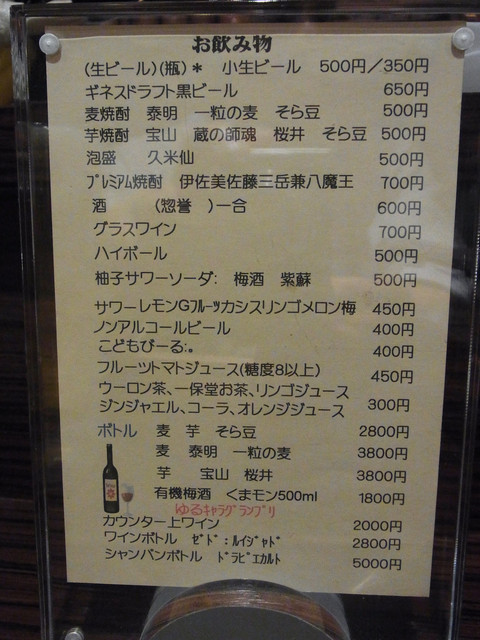 お飲み物
(生ビール)(瓶)＊ 小生ビール 500円／350円
ギネスドラフト黒ビール 650円
麦焼酎 泰明 一粒の麦 そら豆 500円
芋焼酎 宝山 蔵の師魂 桜井 そら豆 500円
泡盛 久米仙 500円
ﾌﾟﾚﾐｱﾑ焼酎 伊佐美佐藤三岳兼八魔王 700円
酒 (惣誉 )一合 600円
グラスワイン 700円
ハイボール 500円
柚子サワーソーダ: 梅酒 紫蘇 500円
サワーレモンGﾌﾙｰﾂカシスリンゴメロン梅 450円
ノンアルコールビール 400円
こどもびーる:。 400円
フルーツトマトジュース(糖度8以上) 450円
ウーロン茶、一保堂お茶、リンゴジュース
ジンジャエル、コーラ、オレンジジュース 300円
ボトル 麦 芋 そら豆 2800円
麦 泰明 一粒の麦 3800円
芋 宝山 桜井 3800円
有機梅酒 くまモン500ml 1800円
ゆるキャラグランプリ
カウンター上ワイン 2000円
ワインボトル ｾﾞﾄﾞ:ﾙｲｼﾞｬﾄﾞ 2800円
シャンパンボトル ﾄﾞﾗﾋﾟｴｶﾙﾄ 5000円